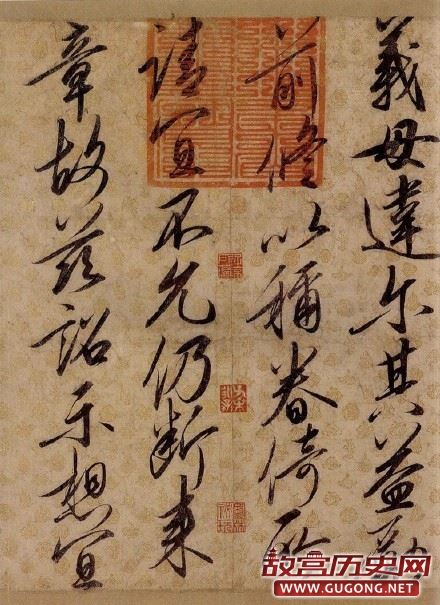 義毋違尔其益
前修以稱眷倚所
請宜不允仍断來
章故茲詔示想宜
故宫历史网
www.GUGONG.net